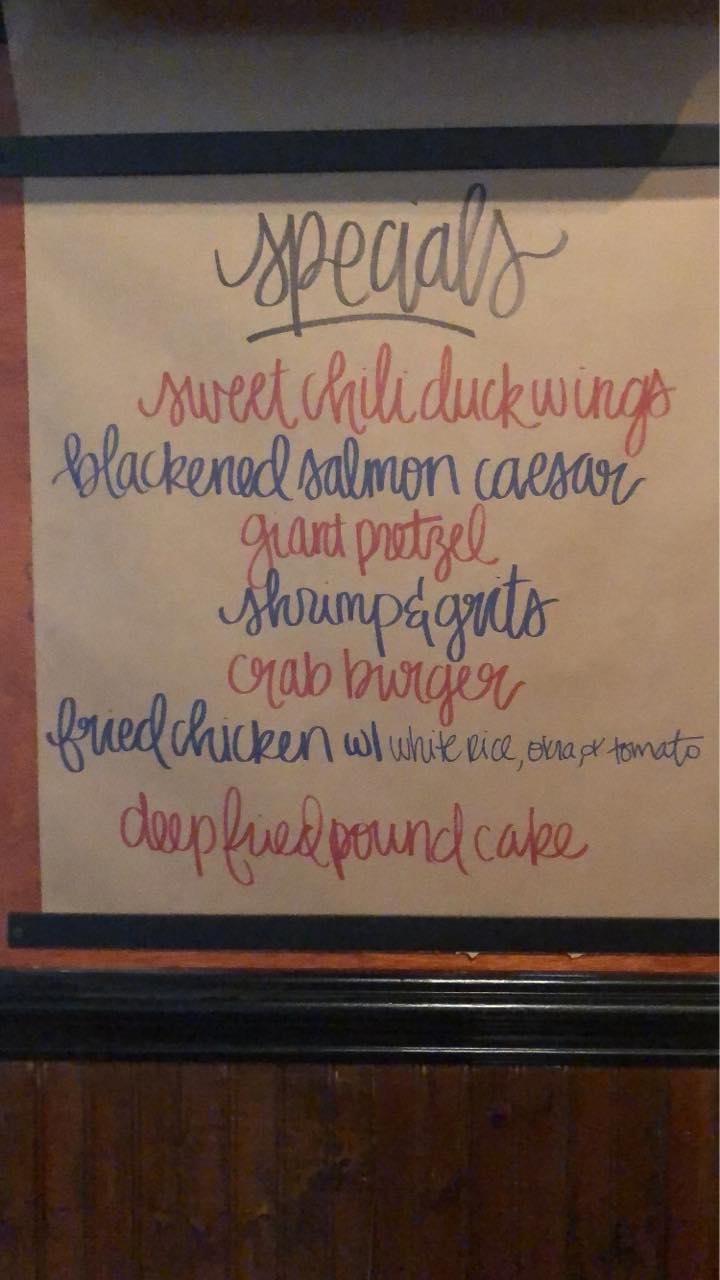 specials
sweet chili duck wings
blackened salmon caesar
giant pretzel
shrimp & grits
crab burger
fried chicken w/ white rice, okra, & tomato
deep fried pound cake